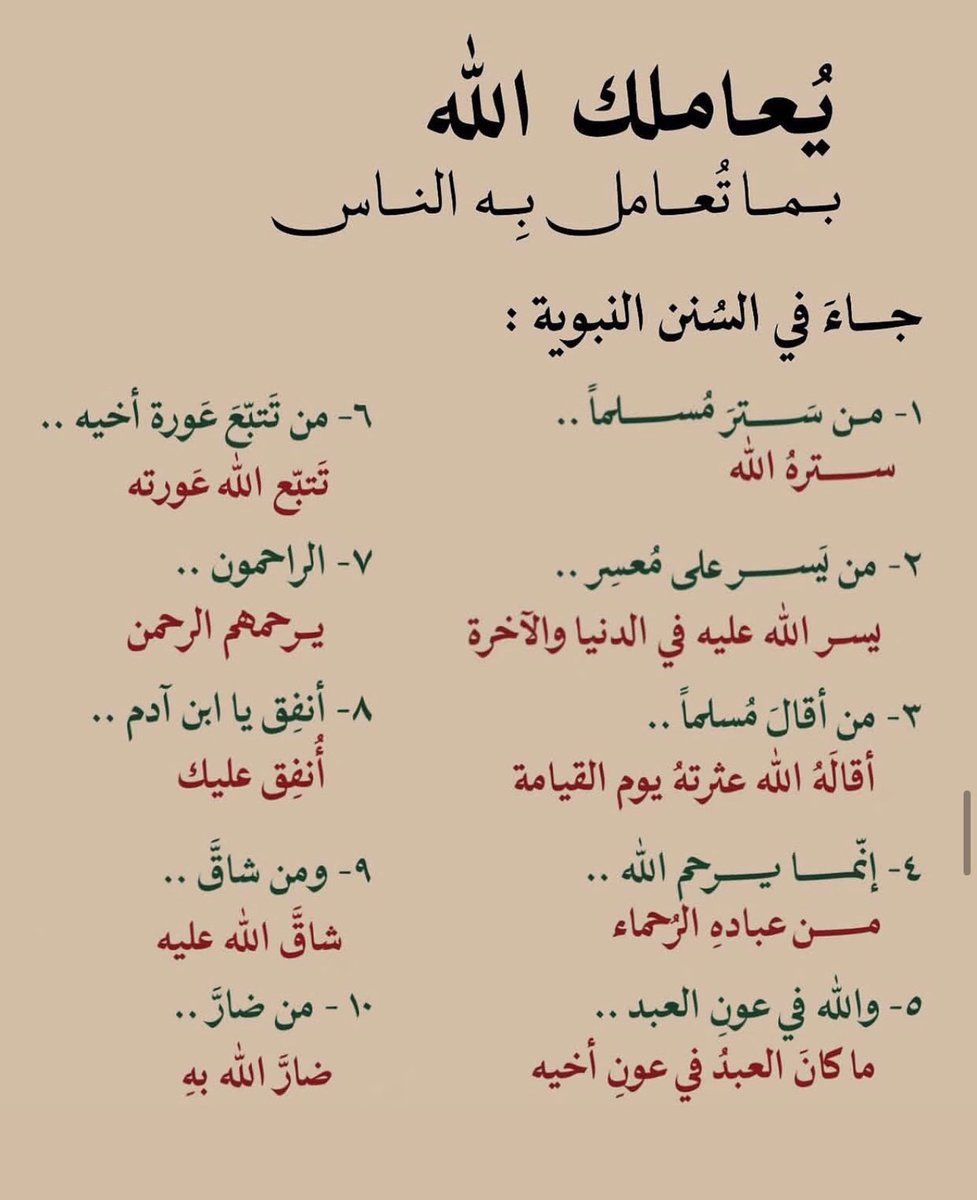 يُعاملك الله
بما تُعامل بِه الناس
جاءَ في السُنن النبوية :
١- من سَترَ مُسلماً ..
سترهُ الله
٢- من يَسر على مُعسِر ..
يسر الله عليه في الدنيا والآخرة
٣- من أقالَ مُسلماً ..
أقالَهُ الله عثرتهُ يوم القيامة
٤- إنّما يرحم الله ..
من عبادهِ الرُحماء
٥- والله في عونِ العبد ..
ما كانَ العبدُ في عونِ أخيه
٦- من تَتبّعَ عَورة أخيه ..
تَتبّع الله عَورته
٧- الراحمون ..
يرحمهم الرحمن
٨- أنفِق يا ابن آدم ..
أُنفِق عليك
٩- ومن شاقَّ ..
شاقَّ الله عليه
١٠- من ضارَّ ..
ضارَّ الله بهِ